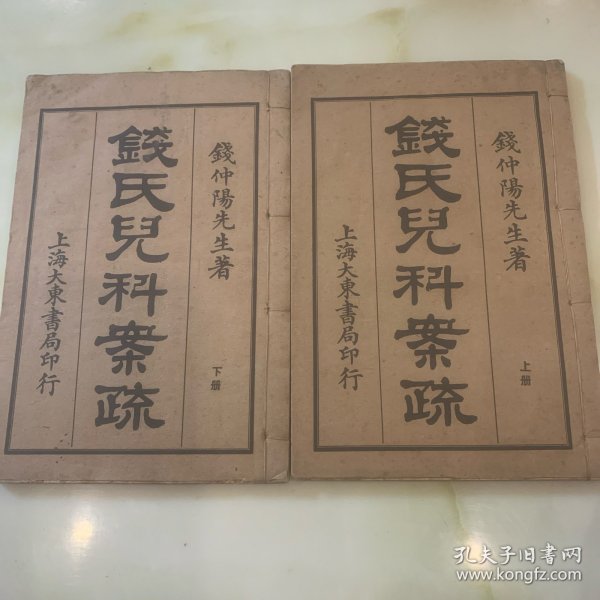 錢仲陽先生著
錢氏兒科案疏
上册
上海大東書局印行
錢仲陽先生著
錢氏兒科案疏
下册
上海大東書局印行
孔夫子旧书网
www.kongfz.com